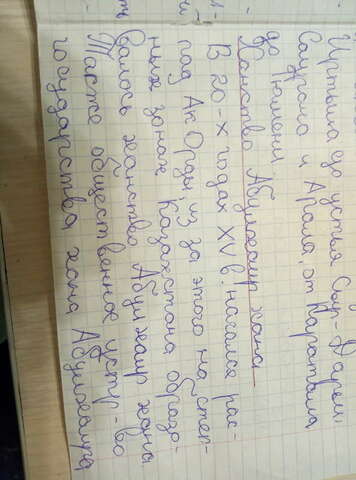 Иртыша до устья Сыр-Дарьи
Саурана и Арала, от Каратала
до Тюмени
Ханство Абулхаир хана
В 20-х годах XV в. начался рас-
пад Ак Орды, из за этого на степ-
ных зонах Казахстана образо-
валось ханство Абулхаир хана
Также общественное устр-во
государства хана Абулхаира